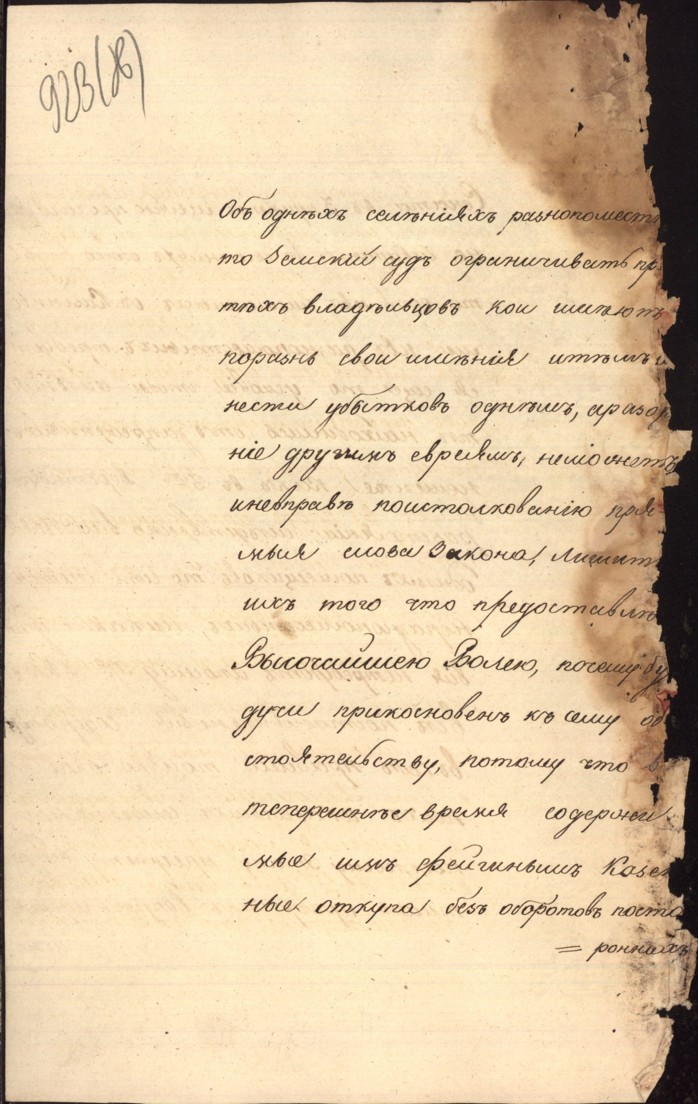 923(об)
Объ однѣхъ селѣніяхъ разнопомѣст
то Земский судъ ограничивать пр
тѣхъ владѣльцовъ кои имѣютъ
поразнь свои имѣнія итѣмъ
нести убытковъ однѣмъ, аразор
ніе другимъ евреямъ, неможетъ
иневправѣ поистолкованію пря
мыя слова Закона, лишит
ихъ того что предоставле
Высочайшею Волею, почему бу
дучи прикосновенъ къ сему об
стоятельству, потому что в
теперешнѣе время содержи
мые имъ фейгинымъ Казен
ные откупа безъ оборотовъ посто
= роннихъ